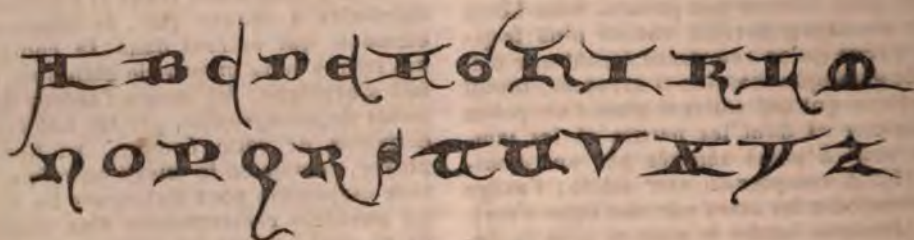 A B C D E F G H I K L M
N O P Q R S T U V X Y Z